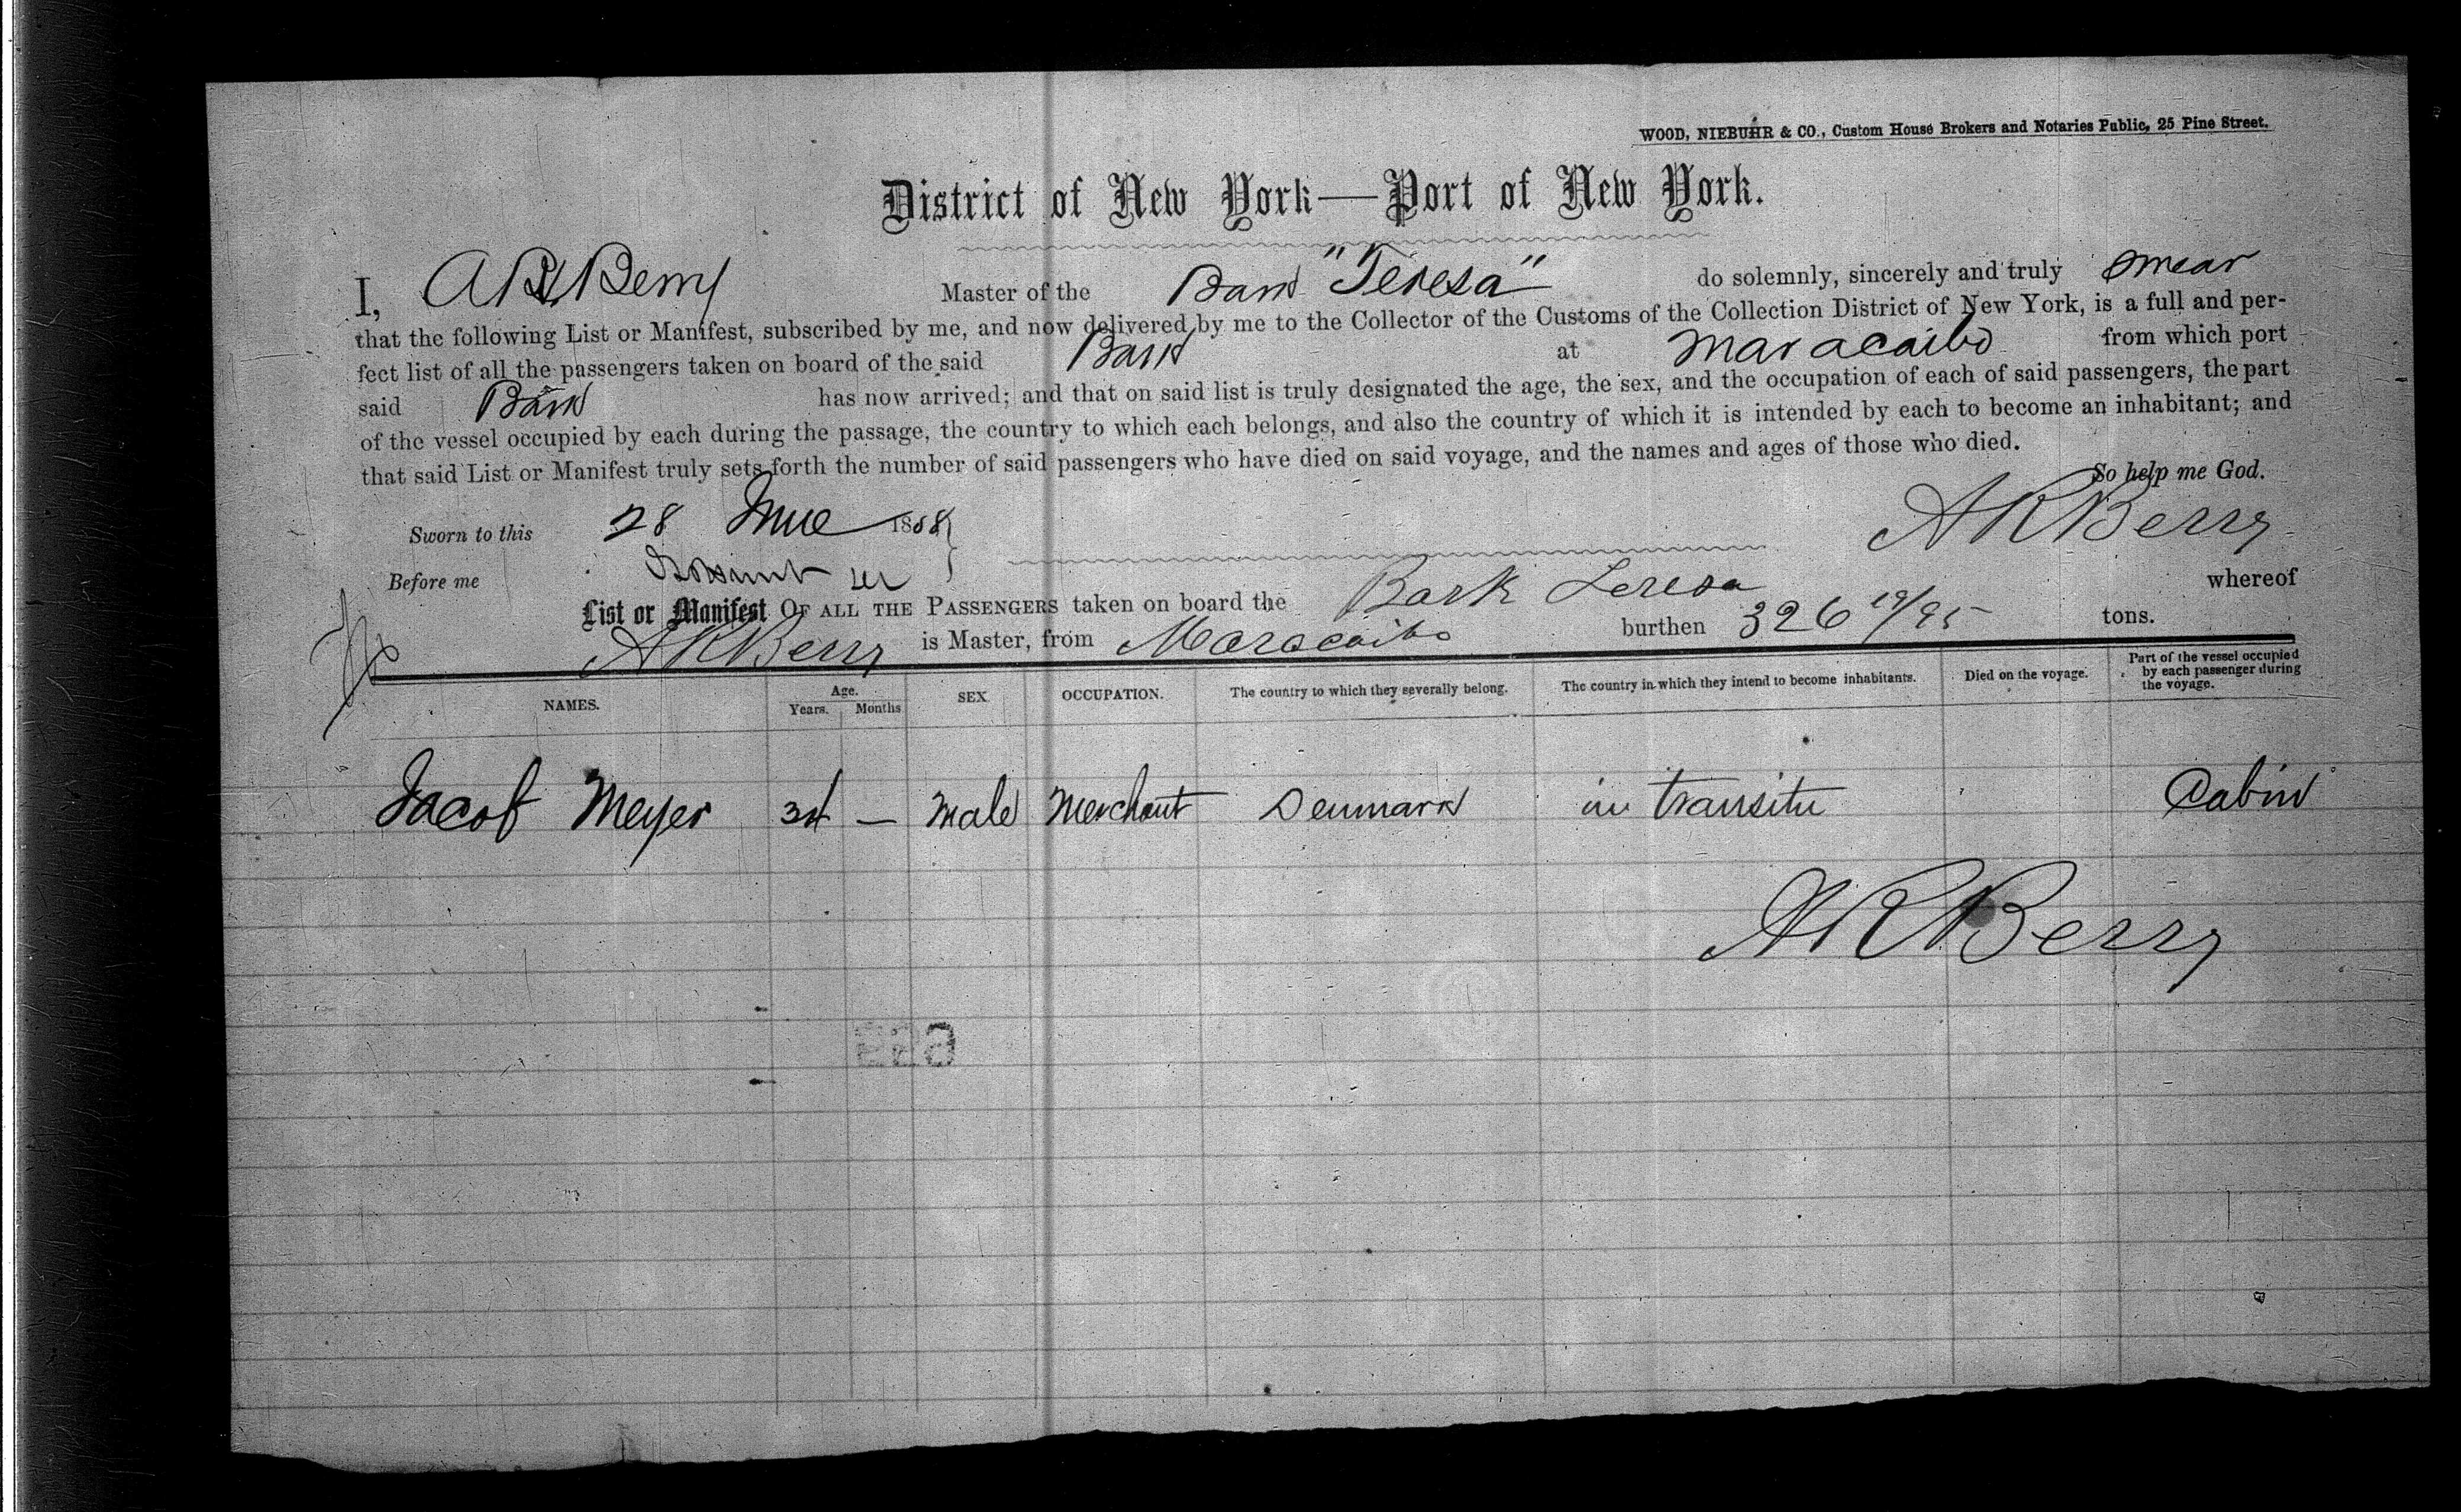 WOOD, NIEBUHR & CO., Custom House Brokers and Notaries Public, 25 Pine Street.
District of New York—Port of New York.
I, A R Berry Master of the Bark "Teresa" do solemnly, sincerely and truly swear
that the following List or Manifest, subscribed by me, and now delivered by me to the Collector of the Customs of the Collection District of New York, is a full and per-
fect list of all the passengers taken on board of the said Bark at Maracaibo from which port
said Bark has now arrived; and that on said list is truly designated the age, the sex, and the occupation of each of said passengers, the part
of the vessel occupied by each during the passage, the country to which each belongs, and also the country of which it is intended by each to become an inhabitant; and
that said List or Manifest truly sets forth the number of said passengers who have died on said voyage, and the names and ages of those who died.
So help me God.
Sworn to this 28 June 1888 A R Berry
Before me
List or Manifest OF ALL THE PASSENGERS taken on board the Bark Teresa whereof
A R Berry is Master, from Maracaibo burthen 326 19/95 tons.
NAMES. Age. Years. Months SEX. OCCUPATION. The country to which they severally belong. The country in which they intend to become inhabitants. Died on the voyage. Part of the vessel occupied by each passenger during the voyage.
Jacob Meyer — male Merchant Denmark in transitu Cabin
A R Berry